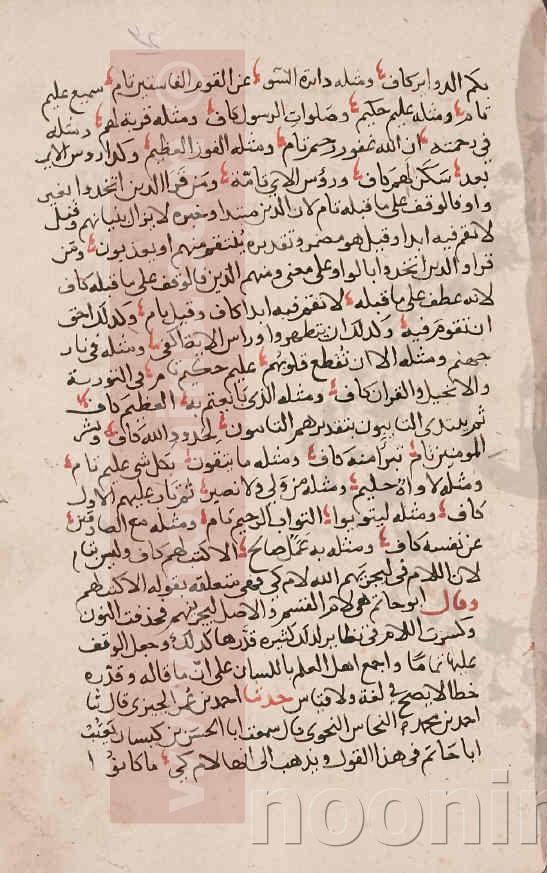 بكم الدواير كاف ومثله دائرة السوء عن القوم الفاسقين تام سميع عليم
تام ومثله عليم حكيم وصلوات الرسول كاف ومثله قربة لهم ومثله
في رحمته ان الله غفور رحيم تام ومثله الفوز العظيم وكذا روس الاي
بعد سكن لهم كاف ورؤس الاي تامة ومن قرا الذين اتخذوا بغير
واو فالوقف على ما قبله تام لان الذين مبتدا وخبره لا يزال بنيانهم وقيل
لا تقم فيه ابدا وقيل هو مضمر وتقديره ينتقم منهم او يعذبون ومن
قرا والذين اتخذوا بالواو على معنى ومنهم الذين فالوقف على ما قبله كاف
لانه عطف على ما قبله لا تقم فيه ابدا كاف وقيل تام وكذلك احق
ان تقوم فيه وكذلك ان يتطهروا وراس الاية اكفى ومثله في نار
جهنم ومثله الا ان تقطع قلوبهم عليم حكيم تام في التورية
والانجيل والقران كاف ومثله الذي بايعتم به العظيم كاف
ثم يبتدى التايبون بتقدير هم التايبون لحدود الله كاف وبشر
المومنين تام تبرا منه كاف ومثله ما يتقون بكل شي عليم تام
ومثله لاواه حليم ومثله من ولي ولا نصير ثم تاب عليهم الاول
كاف ومثله ليتوبوا التواب الرحيم تام ومثله مع الصادقين
عن نفسه كاف ومثله به عمل صالح الا كتب لهم كاف وليس بتام
لان اللام في ليجزيهم الله لام كي فهي متعلقة بقوله الا كتب لهم
وقال ابو حاتم هي لام القسم والاصل ليجزينهم فحذفت النون
وكسرت اللام في نظاير لذلك كثيرة قدرها كذلك وجعل الوقف
عليها تاما واجمع اهل العلم باللسان على ان ما قاله وقدره
خطا لا يصح في لغة ولا قياس حدثنا احمد بن عمر الجيزي قال ثنا
احمد بن محمد النحاس النحوي قال سمعت ابا الحسن بن كيسان يعيب
ابا حاتم في هذا القول ويذهب الى انها لام كي ما كانوا
noonin